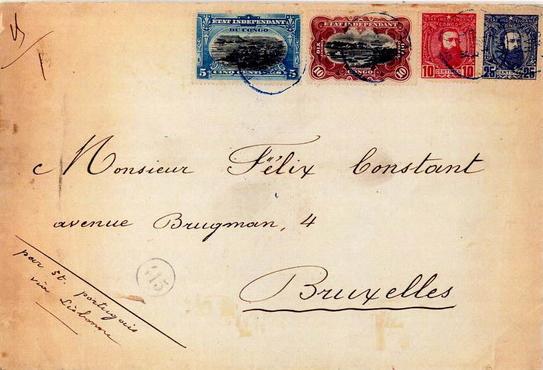 ETAT INDEPENDANT
DU CONGO
5 CINQ CENTES 5
ETAT INDEPENDANT
DU CONGO
10 DIX 10
10 10
25 25
Monsieur Félix Constant
avenue Brugman, 4
Bruxelles
par st. portugais
via Lisbonne
315